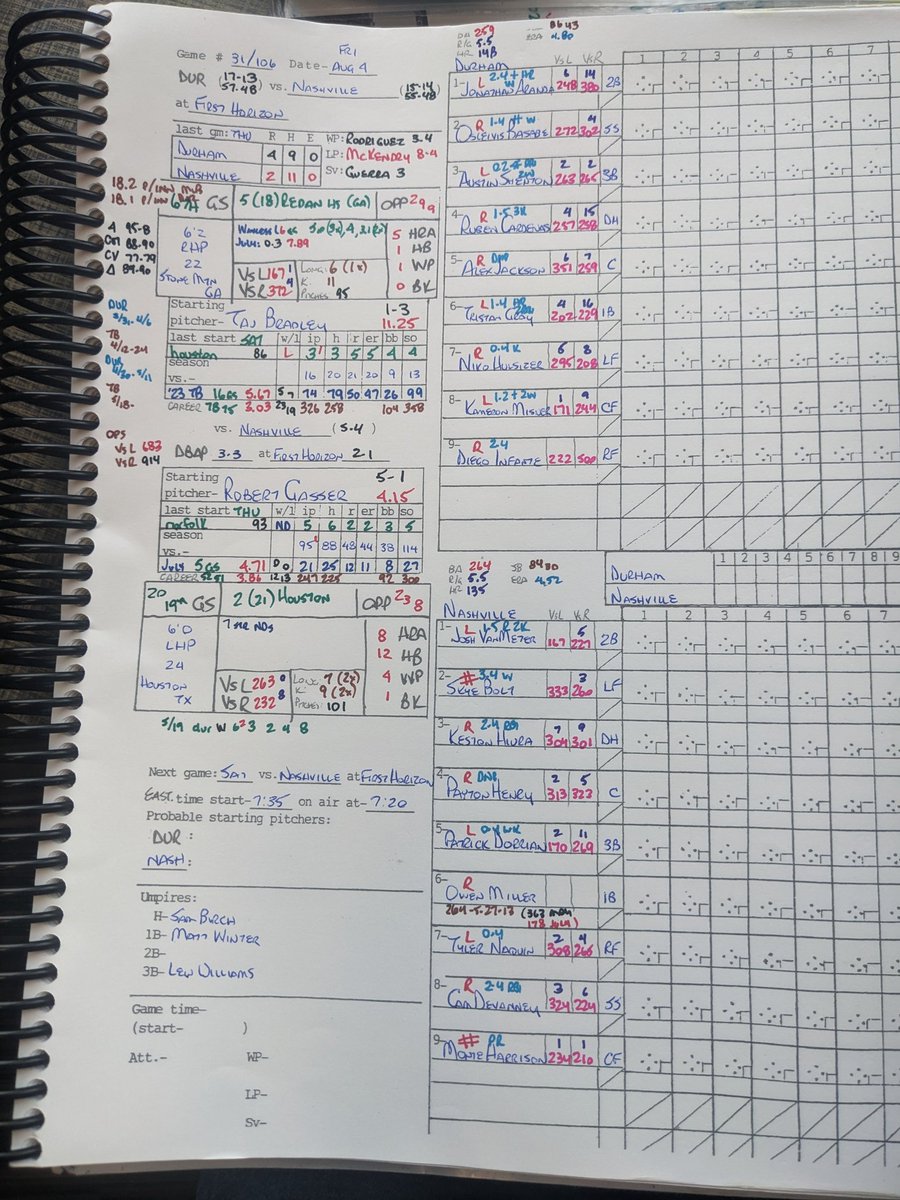 Game # 31/106 Date- FRI AUG 4
DUR (17-13) (57-48) vs. NASHVILLE (15-14) (55-48)
at FIRST HORIZON
last gm: THU R H E WP: RODRIGUEZ 3-4
DURHAM 4 9 0 LP: MCKENDRY 8-4
NASHVILLE 2 11 0 SV: GUERRA 3
18.2 P/INN MLB
18.1 P/INN
GS 5 (18) REDAN HS (GA) OPP 299
4 95-8
CUT 88-90
CV 77-79
Δ 89-90
6'2
RHP
22
STONE MTN
GA
JULY: 0-3 7.89
5 HRA
1 HB
1 WP
0 BK
VS L 167 1
VS R 372 4
LONG: 6 (1x)
K: 11
PITCHES 95
Starting 1-3
pitcher- TAJ BRADLEY 11.25
last start SAT w/l ip h r er bb so
houston 86 L 3 1 3 5 5 4 4
season
vs.- 16 20 21 20 9 13
'23 TB 16 GS 5.67 5 7 74 79 50 47 26 99
CAREER TB 75 3.03 23 19 326 258 104 358
DUR
3/31-4/6
TB
4/12-24
DUR
TB
5/18-
OPS
VS L 683
VS R 914
vs. NASHVILLE (5-4)
DBAP 3-3 at FIRST HORIZON 2-1
Starting 5-1
pitcher- ROBERT GASSER 4.15
last start THU w/l ip h r er bb so
norfolk 93 ND 5 6 2 2 3 5
season
vs.- 95 88 48 44 38 114
JULY 5 GS 4.71 0 0 21 25 12 11 8 27
CAREER 52 51 3.86 12 13 247 225 92 300
20
19th GS 2 (21) HOUSTON OPP 238
6'0
LHP
24
HOUSTON
TX
7 STR NDS
8 HRA
12 HB
4 WP
1 BK
VS L 263 0
VS R 232 8
LONG: 7 (2x)
K: 9 (2x)
PITCHES 101
5/19 dur W 6 2 3 2 4 8
Next game: SAT vs. NASHVILLE at FIRST HORIZON
EAST. time start- 7:35 on air at- 7:20
Probable starting pitchers:
DUR:
NASH:
Umpires:
H- SAM BURCH
1B- MATT WINTER
2B-
3B- LEW WILLIAMS
Game time-
(start- )
Att.- WP-
LP-
Sv-
BA 259
R/G 5.5
HR 148
SB 43
ERA 4.80
DURHAM VS L VS R 1 2 3 4 5 6 7
1- L 2-4 + HR W 6 14
JONATHAN ARANDA 248 380 2B
2 R 1-4 W 4
OSLEIVIS BASABE 272 302 SS
3- L 2 2
AUSTIN SHENTON 263 265 3B
4- R 1-5 3K 4 15
RUBEN CARDENAS 257 258 DH
5- R DNP 6 7
ALEX JACKSON 351 259 C
6- L 1-4 4 16
TRISTAN GRAY 202 229 1B
7- R 0-4 K 6 8
NIKO HULSIZER 295 208 LF
8- L 1-2 + 2W 1 9
KAMERON MISNER 171 244 CF
9- R 2-4
DIEGO INFANTE 222 500 RF
1 2 3 4 5 6 7 8 9
DURHAM
NASHVILLE
BA 264
R/G 5.5
HR 135
ERA 4.52
NASHVILLE VS L VS R 1 2 3 4 5 6 7
1- L 1-5 R 2K 5
JOSH VANMETER 167 227 2B
2- # 3-4 W 3
SKYE BOLT 333 260 LF
3- R 2-4 RBI 7 9
KESTON HIURA 304 301 DH
4- R DNP 2 5
PAYTON HENRY 313 323 C
5- L 0-4 2 11
PATRICK DORRIAN 170 269 3B
6- R
OWEN MILLER 1B
264-5-27-13 (363 MAY
178 JULY)
7- L 0-4 2 4
TYLER NAQUIN 308 266 RF
8- R 2-4 RBI 3 6
CAM DEVANNEY 324 224 SS
9- # PR 1 1
MONTE HARRISON 234 210 CF